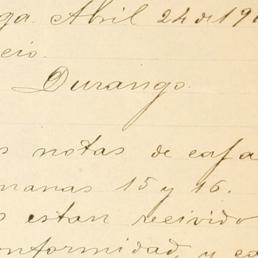 ga. Abril 24 de 19
cio.
Durango.
s notas de caja
manas 15 y 16.
s estan recivido
onformidad, y ca